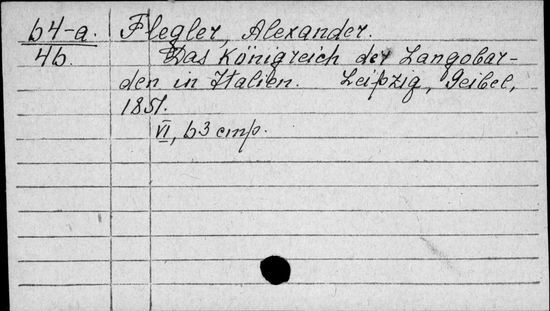 64-a. Flegler, Alexander.
46. Das Königreich der Langobar-
den in Italien. Leipzig, Geibel,
1851.
VI, 63 стр.